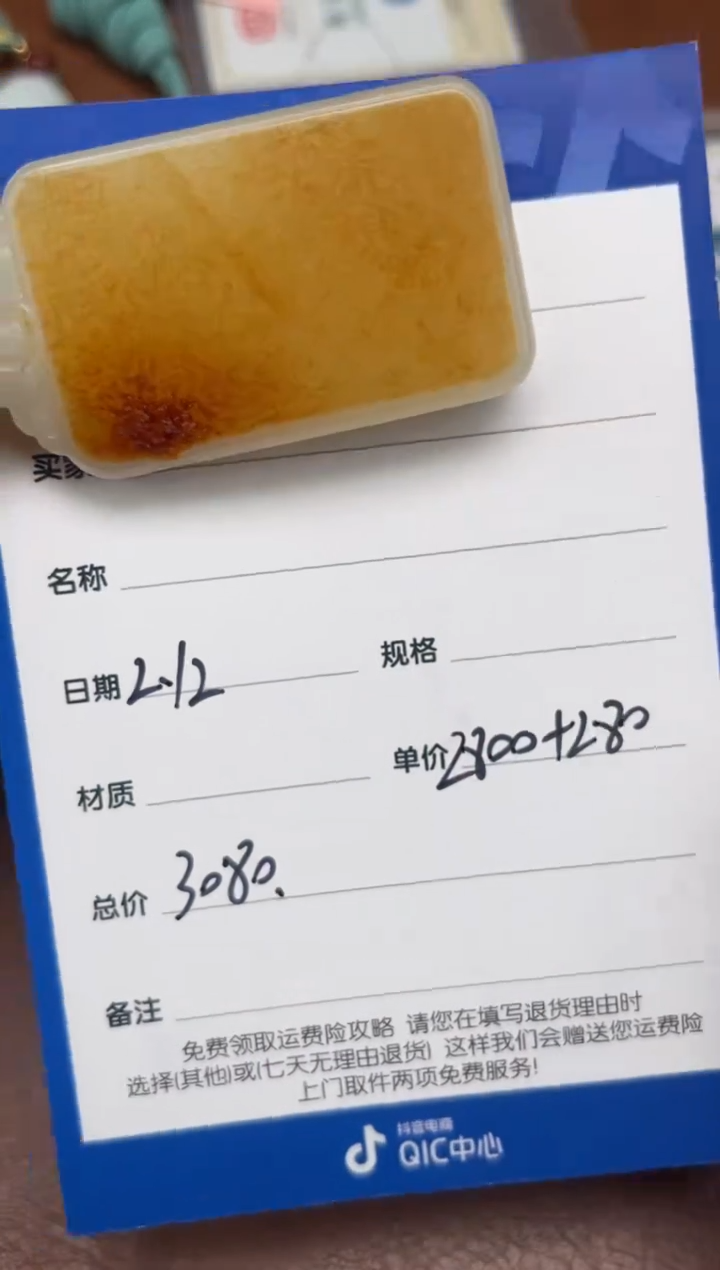 买家
名称
日期 2.12 规格
材质 单价 2800+280
总价 3080.
备注
免费领取运费险攻略 请您在填写退货理由时
选择(其他)或(七天无理由退货) 这样我们会赠送您运费险
上门取件两项免费服务!
抖音电商
QIC中心